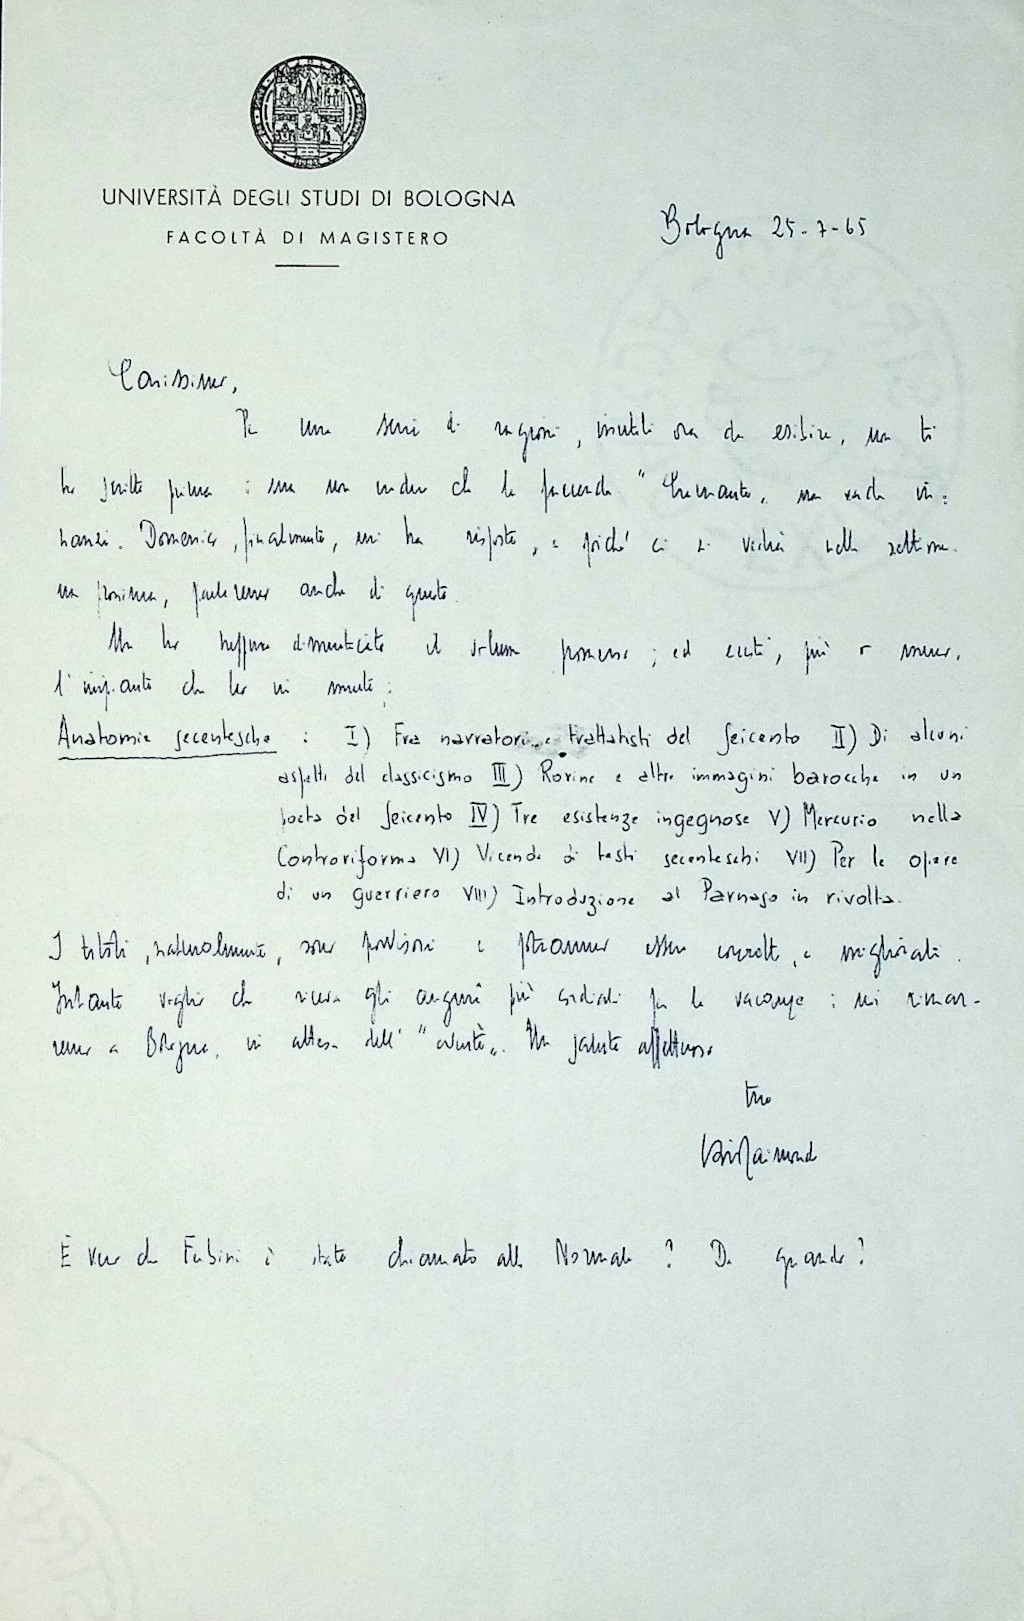 UNIVERSITÀ DEGLI STUDI DI BOLOGNA
FACOLTÀ DI MAGISTERO
Bologna 25-7-65
Carissimo,
Per una serie di ragioni, inutili ora da esibire, non ti
ho scritto prima: ma non credere che la faccenda "
nanzi. Domenico, finalmente, mi ha risposto, e poiché ci si vedrà nella settima-
na prossima, parleremo anche di questo.
Non ho neppure dimenticato il volume promesso; ed eccoti, più o meno,
l'impianto che ho in mente:
Anatomie secentesche: I) Fra narratori e trattatisti del Seicento II) Di alcuni
aspetti del classicismo III) Rovine e altre immagini barocche in un
poeta del Seicento IV) Tre esistenze ingegnose V) Mercurio nella
Controriforma VI) Vicende di testi secenteschi VII) Per le opere
di un guerriero VIII) Introduzione al Parnaso in rivolta.
I titoli, naturalmente, sono provvisori e potranno essere corretti, e migliorati.
Intanto voglio che riceva gli auguri più cordiali per le vacanze: noi rimar-
remo a Bologna, in attesa dell'" ". Un saluto affettuoso
tuo
Ezio Raimondi
È vero che Fubini è stato chiamato alla Normale? Da quando?